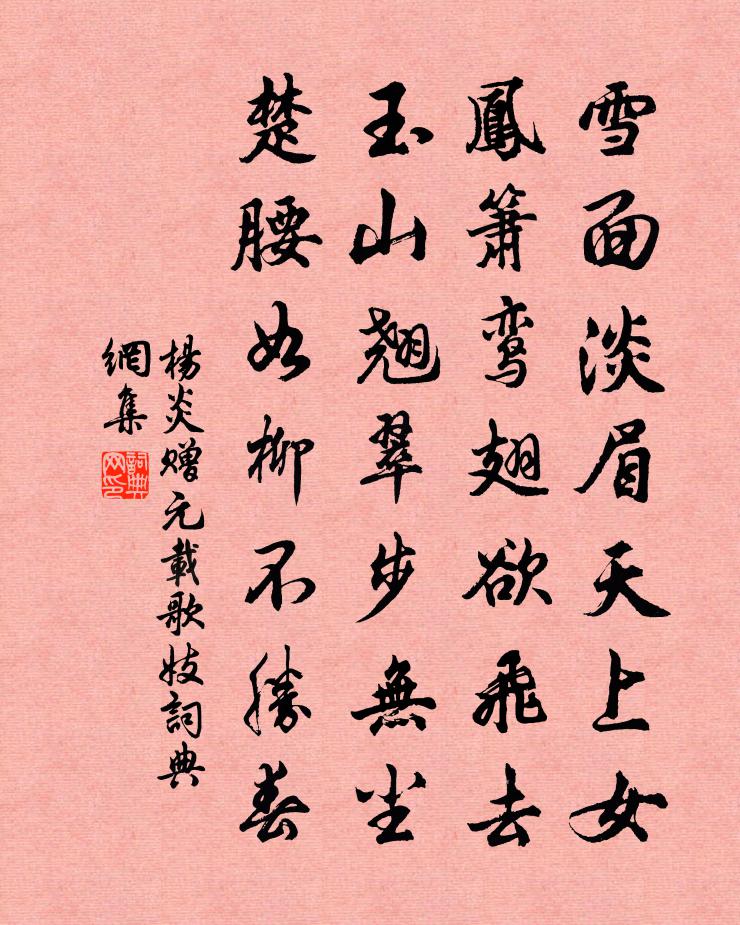 雪面淡眉天上女
鳳簫鸾翅欲飛去
玉山翹翠步無尘
楚腰如柳不勝春
楊炎赠元載歌妓詞典
網集
詞典
网印